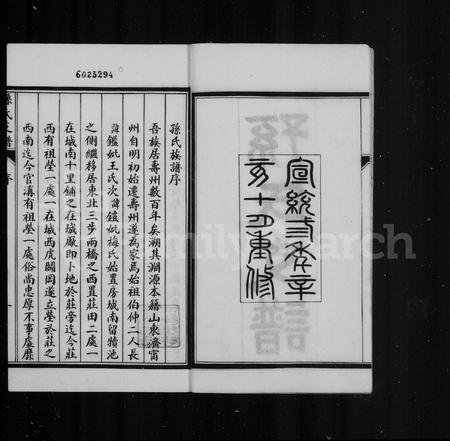 6025294
宣統弎秊辛
亥十月重修
孫氏族譜序
吾族居壽州數百年矣溯其淵源本籍山東濟甯
州自明初始遷壽州遂為家焉始祖伯仲二人長
諱鑑妣王氏次諱鎧妣梅氏始置房城南留犢池
之側繼移居東北三步兩橋之西置莊田二處一
在城南十里鋪之在城廠即卜地於莊旁迄今莊
西有祖塋一處一在城西虎闗岡遂立塋於莊之
西南迄今官溝有祖塋一處俗尚忠厚不事虛靡
familysearch